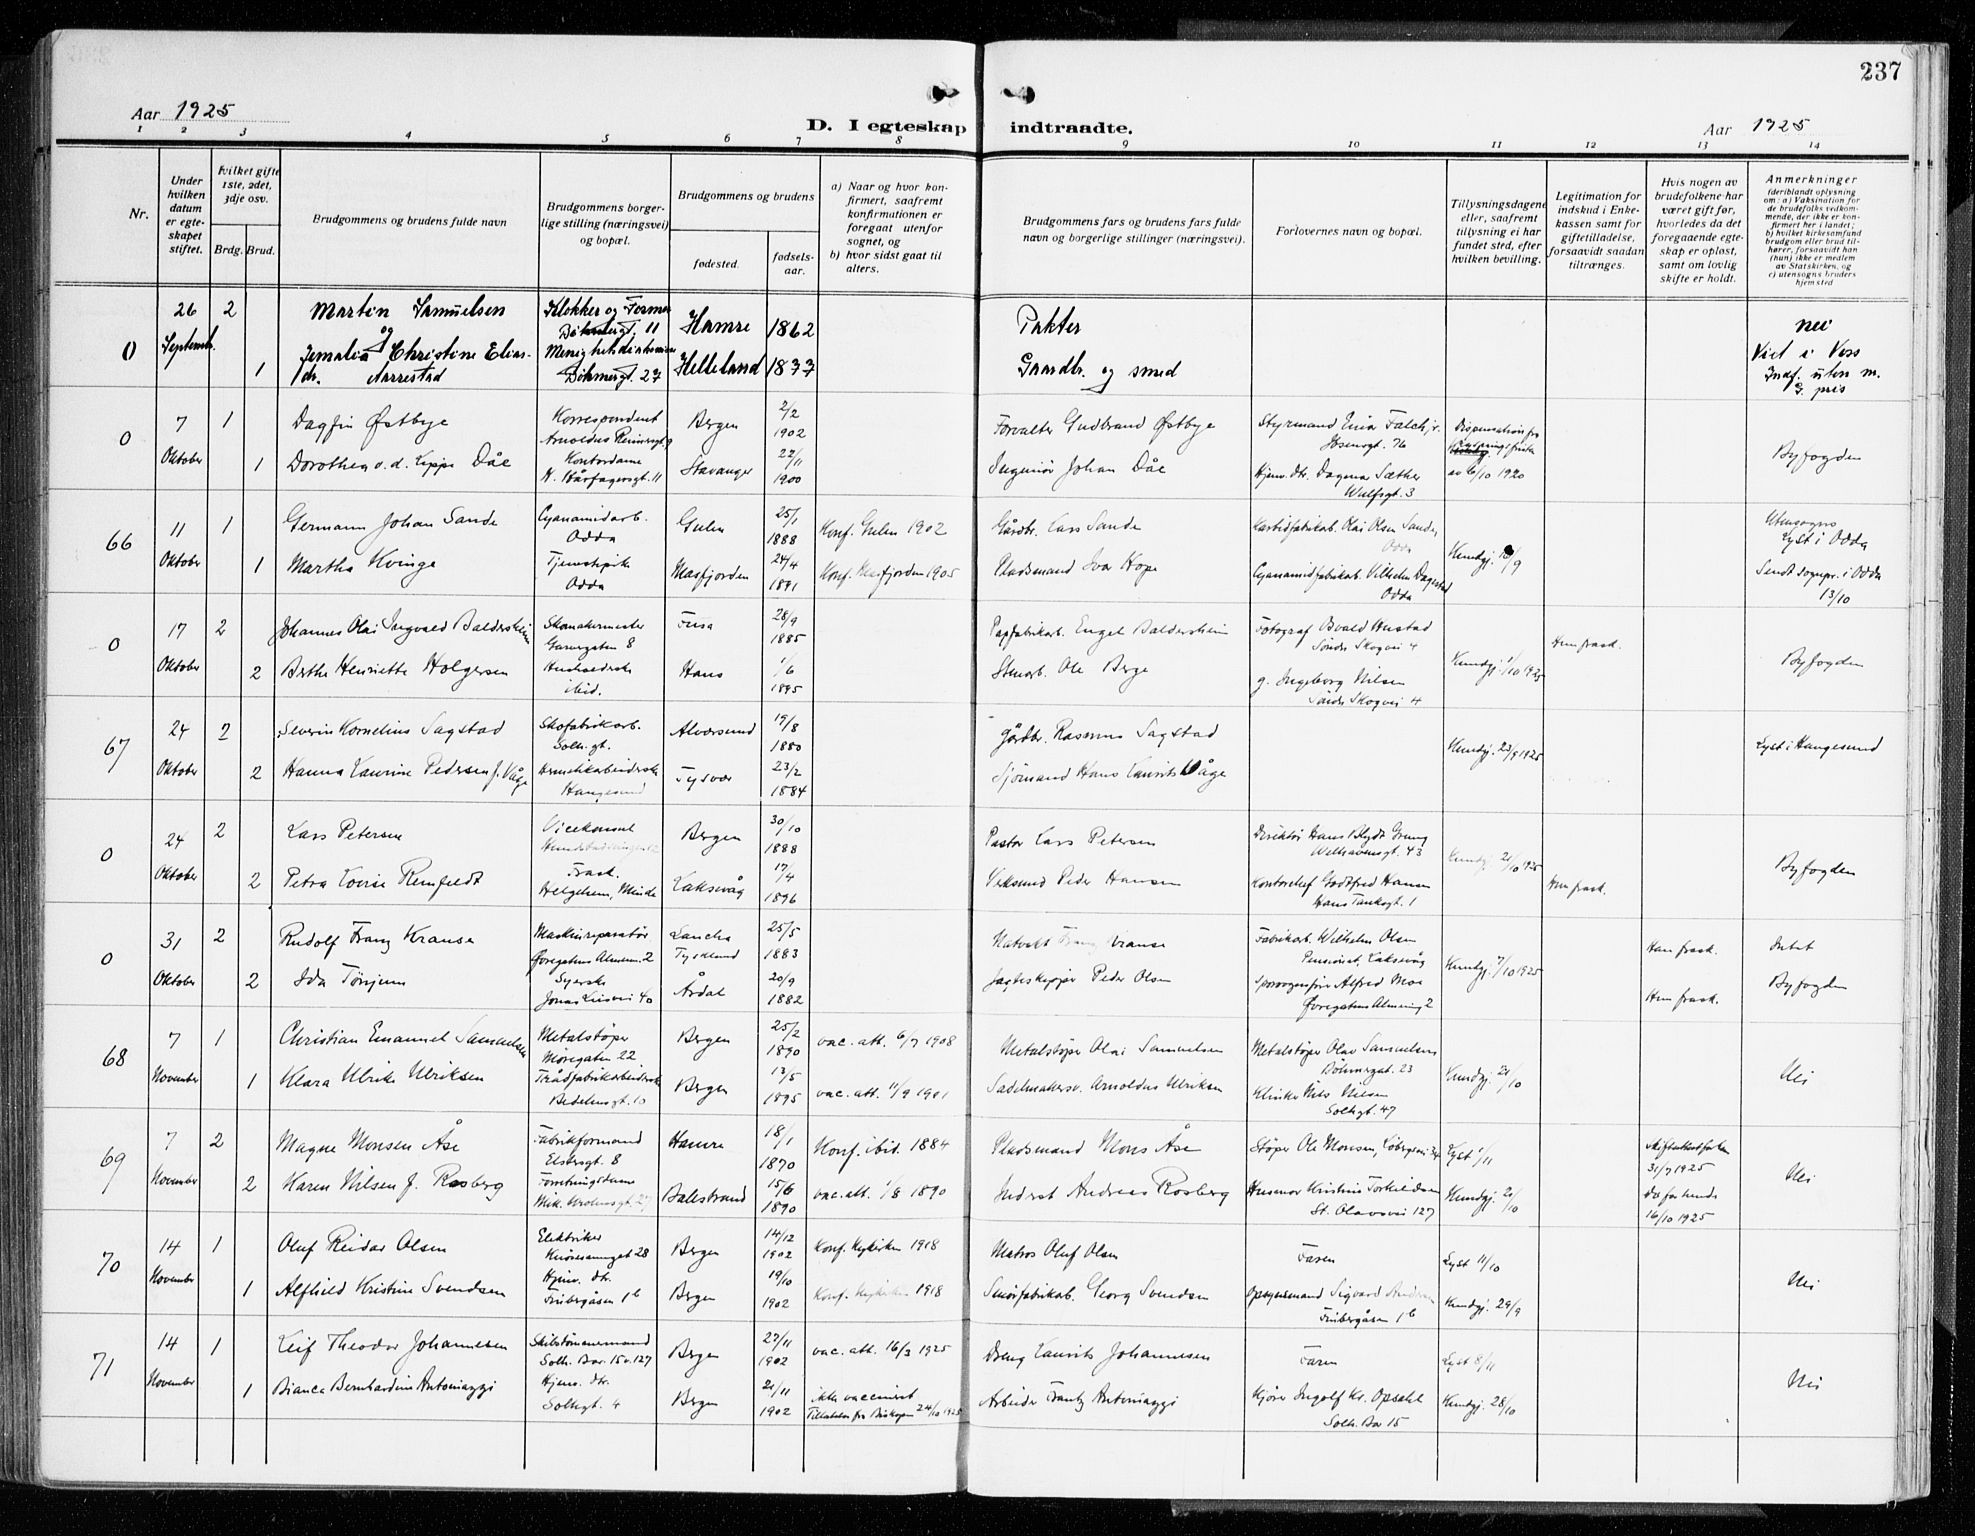 237
Aar 1925
D. I egteskap indtraadte.
Aar 1925
1 2 3 4 5 6 7 8 9 10 11 12 13 14
Nr.
Under hvilken datum er egteskapet stiftet.
Hvilket gifte 1ste, 2det, 3dje osv.
Brdg. Brud.
Brudgommens og brudens fulde navn
Brudgommens borgerlige stilling (næringsvei) og bopæl.
Brudgommens og brudens
fødested.
fødselsaar.
a) Naar og hvor konfirmert, saafremt konfirmationen er foregaat utenfor sognet, og
b) hvor sidst gaat til alters.
Brudgommens fars og brudens fars fulde navn og borgerlige stillinger (næringsvei).
Forlovernes navn og bopæl.
Tillysningsdagene eller, saafremt tillysning ei har fundet sted, efter hvilken bevilling.
Legitimation for indskud i Enkekassen samt for giftetilladelse, forsaavidt saadan tiltrænges.
Hvis nogen av brudefolkene har været gift før, hvorledes da det foregaaende egteskap er opløst, samt om lovlig skifte er holdt.
Anmerkninger (deriblandt oplysning om: a) Vaksination for de brudefolks vedkommende, der ikke er konfirmert her i landet; b) hvilket kirkesamfund brudgom eller brud tilhører, forsaavidt han (hun) ikke er medlem av Statskirken, og c) utensogns bruders hjemsted
0 26 September 2 Martin Samuelsen Klokker og 11 Hamre 1862 nei
og
1 Christine Elias-dr. Aarrestad 27 Helleland 1877 Gaardbr. og smed Viet i Voss
0 7 Oktober 1 Dagfin Østbye Korrespondent Bergen 2/2 1902 Forvalter Gudbrand Østbye Styrmand Falch jr. 76 Dispensation fra
1 Dorothea v. d. Lippe Dåe Kontordame H. Hårfagersgt. 11 Stavanger 22/11 1900 Ingeniør Johan Dåe Hjemv. dtr. Dagmar Sæther Wulfsgt. 3 av 6/10 1920 Byfogden
66 11 Oktober 1 Germann Johan Sande Cyanamidarb. Odda Gulen 25/1 1888 Konf. Gulen 1902 Gårdbr. Lars Sande Karbidfabrikarb. Olai Olsen Sande, Odda Utensogns Lyst i Odda
1 Martha Kvinge Tjenestepike Odda Masfjorden 24/4 1891 Konf. Masfjorden 1905 Pladsmand Ivar Hope Cyanamidfabrikarb. Vilhelm Odda Sendt sognepr. i Odda 13/10
0 17 Oktober 2 Johannes Olai Ingvald Baldersheim Skomakermester 8 Fusa 28/9 1885 Papfabrikarb. Engel Baldersheim Fotograf Søndre Skogvei 4 Hun frask.
2 Berthe Henriette Holgersen ibid. Hans 1/6 1895 Stenarb. Ole Berge g. Ingeborg Nilsen Søndre Skogvei 4 Kundgj. 1/10 1925 Byfogden
67 24 Oktober 2 Severin Kornelius Sagstad Skofabrikarb. Solh. gt. Alversund 19/8 1880 Gårdbr. Rasmus Sagstad Kundgj. 23/9 1925 Lyst i Haugesund
2 Hanna Laurine Pedersen f. Våge Hermetikarbeiderske Haugesund Tysvær 23/2 1884 Sjømand Hans Laurits Våge
0 24 Oktober 2 Lars Petersen Vicekonsul Bergen 30/10 1888 Pastor Lars Petersen Direktør Hans Blydt Grung Welhavensgt. 43 Kundgj. 2/10 1925
2 Petra Lovise Remfeldt Frask. Helgesen, Minde Laksevåg 17/4 1896 Verksmd Peder Hansen Kontorchef Godtfred Hansen Hans Tanksgt. 1 Hun frask. Byfogden
0 31 Oktober 2 Rudolf Franz Krause Maskinreparatør Øvregatens Almen. 2 Tyskland 25/5 1883 Natvakt Franz Krause Fabrikarb. Wilhelm Olsen Laksevåg Kundgj. 7/10 1925 Han frask. Intet
2 Ida Tønjum Syerske Jonas Liesvei 40 Årdal 20/9 1882 Jagteskipper Peder Olsen Sporvognsfører Alfred Moe Øvregatens Almening 2 Hun frask. Byfogden
68 7 November 1 Christian Emanuel Samuelsen Metalstøper 22 Bergen 25/2 1890 vac. att. 6/7 1908 Metalstøper Olai Samuelsen Metalstøper Olav Samuelsen 23
1 Klara Ulrike Ulriksen Trådfabrikarbeiderske 10 Bergen 13/5 1895 vac. att. 11/9 1901 Sadelmakersv. Arnoldus Ulriksen Nils Nilsen Solhgt. 47 Kundgj. 21/10 Nei
69 7 November 2 Magne Monsen Åse Fabrikformand Elstersgt. 8 Hamre 18/1 1870 Konf. ibid. 1884 Pladsmand Mons Åse Støper Ole Monsen, Lyst 1/11 31/7 1925
2 Karen Nilsen f. Rosberg Balestrand 15/6 1890 vac. att. 1/8 1890 Inderst Andreas Rosberg Kristine Torkildsen St. Olavsvei 127 Kundgj. 21/10 16/10 1925 Nei
70 14 November 1 Oluf Reidar Olsen Elektriker 28 Bergen 14/12 1902 Konf. Nykirken 1918 Matros Oluf Olsen Faren Lyst 11/10
1 Alfhild Kristine Svendsen Hjemv. dtr. 1b Bergen 19/10 1902 Konf. Nykirken 1918 Smørfabrikarb. Georg Svendsen Opsynsmand Sigvard 1b Kundgj. 29/9 Nei
71 14 November 1 Leif Theodor Johannesen Solh. Bor 15 v. 127 Bergen 27/11 1902 vac. att. 16/3 1925 Dreng Laurits Johannesen Faren Lyst 8/11
1 Bianca Bernhardine Antomaggi Hjemv. dtr. Solhgt. 4 Bergen 21/11 1902 ikke vaccineret Tilladelse fra Biskopen 24/10 1925 Arbeider Frantz Antomaggi Kjører Ingolf Kr. Opsahl Solh. Bor 15 Kundgj. 28/10 Nei